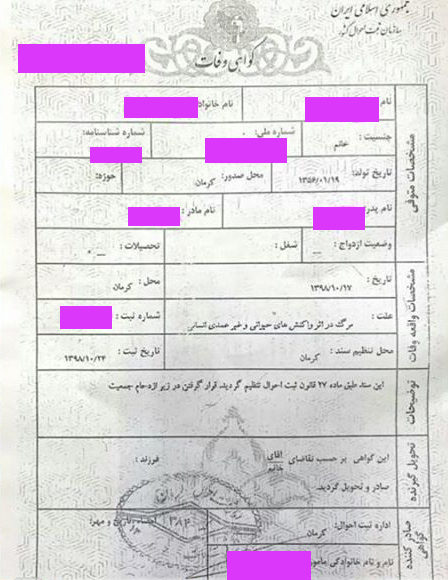 جمهوری اسلامی ایران
سازمان ثبت احوال کشور
گواهی وفات
مشخصات متوفی
نام
نام خانواد
جنسیت : خانم
شماره ملی:
شماره شناسنامه:
تاریخ تولد: ۱۳۵۶/۰۱/۱۹
محل صدور: کرمان
حوزه:
نام پدر:
نام مادر :
وضعیت ازدواج : —
شغل :
تحصیلات : —
مشخصات واقعه وفات
تاریخ : ۱۳۹۸/۱۰/۱۷
محل : کرمان
علت : مرگ در اثر واکنش های حیوانی و غیر عمدی انسانی
شماره ثبت :
محل تنظیم سند : کرمان
تاریخ ثبت : ۱۳۹۸/۱۰/۲۴
توضیحات
این سند طبق ماده ۲۷ قانون ثبت احوال تنظیم گردید. قرار گرفتن در زیر ازدحام جمعیت
تحویل گیرنده
این گواهی بر حسب تقاضای آقای خانم فرزند :
صادر و تحویل گردید.
صادر کننده گواهی
اداره ثبت احوال: کرمان
۳۸۴
نام و نام خانوادگی مامور